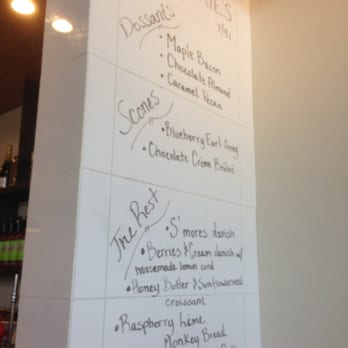 7/31
Dossants
• Maple Bacon
• Chocolate Almond
• Caramel Pecan
Scones
• Blueberry Earl Grey
• Chocolate Creme Brûleé
The Rest
• S'mores danish
• Berries & Cream danish w/
housemade lemon curd
• Honey Butter & Sunflowerseed
croissant
• Raspberry Lime
Monkey Bread